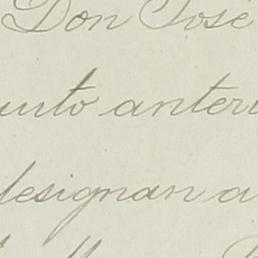 Don José
unto anteri
designan a